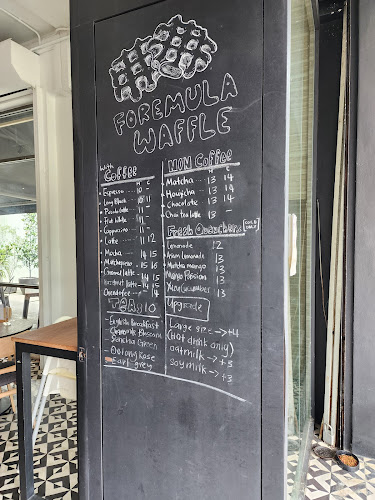 FOREMULA
WAFFLE
With
COFFEE
H C
Espresso 10
Long Black 10 11
Piccolo Latte 11 -
Flat White 11 -
Cappucino 11 -
Latte 11 12
Mocha 14 15
Matchapresso 15 16
Caramel latte 14 15
Hazelnut latte 14 15
Orencoffee 14
TEA $10
- English Breakfast
- Chamomile Blossoms
- Sencha Green
- Oolong Rose
- Earl grey
NON Coffee
H C
Matcha 13 14
Houjicha 13 14
Chocolate 13 14
Chai tea latte 13 -
Fresh Quenchers
COLD ONLY
Lemonade 12
Asam lemonade 13
Matcha mango 13
Mango Passion 13
Yuzu Cucumber 13
Upgrade
Large size → +4
(Hot drink only)
oatmilk → +3
soymilk → +3